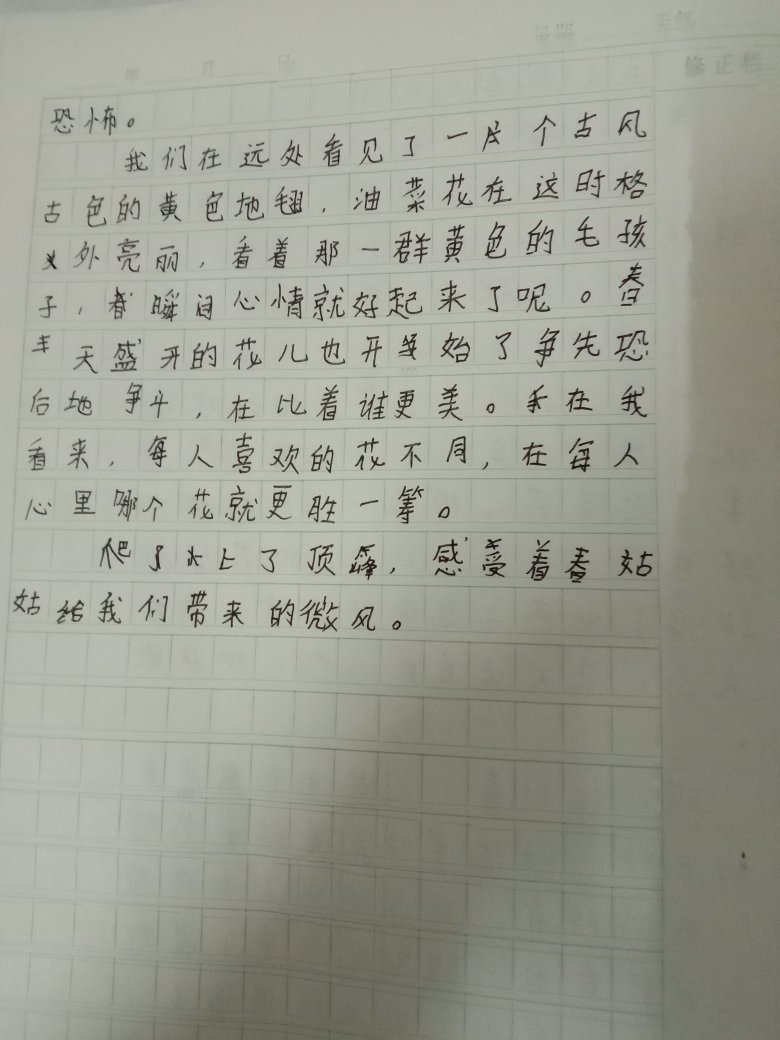 星期 天气
年 月 日 修正栏
恐怖。
我们在远处看见了一片个古风
古色的黄色地毯，油菜花在这时格
外亮丽，看着那一群黄色的毛孩
子，瞬间心情就好起来了呢。春
天盛开的花儿也开始了争先恐
后地争斗，在比着谁更美。在我
看来，每人喜欢的花不同，在每人
心里哪个花就更胜一筹。
爬上了顶峰，感受着春姑
姑给我们带来的微风。